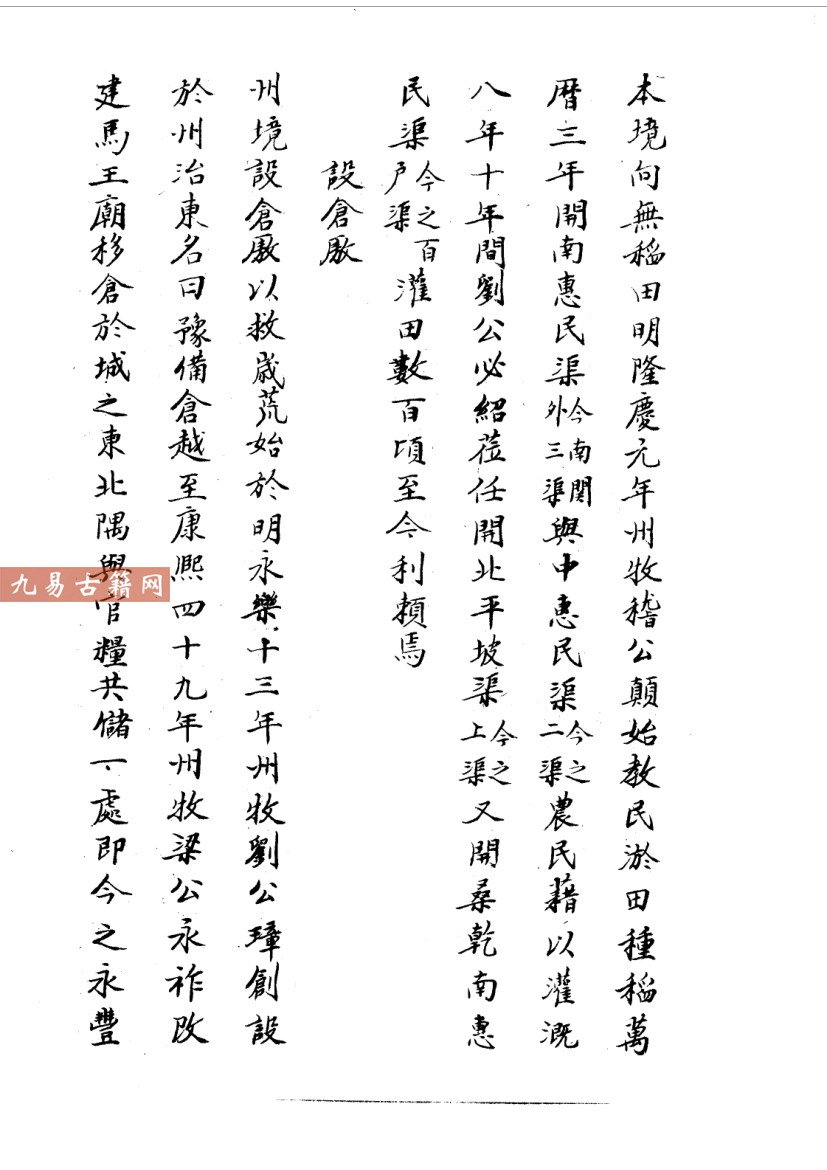 本境向無稻田明隆慶元年州牧稽公顛始教民淤田種稻萬
曆三年開南惠民渠今南関外三渠與中惠民渠今之二渠農民藉以灌溉
八年十年間劉公必紹蒞任開北平坡渠今之上渠又開桑乾南惠
民渠今之百户渠灌田數百頃至今利賴焉
設倉厫
州境設倉厫以救歲荒始於明永樂十三年州牧劉公璋創設
於州治東名曰豫備倉越至康熙四十九年州牧梁公永祚改
建馬王廟移倉於城之東北隅與官糧共儲一處即今之永豐
九易古籍网